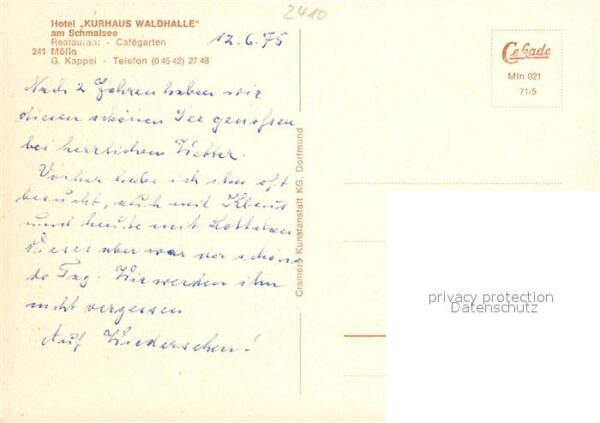 2410
Hotel „KURHAUS WALDHALLE"
am Schmalsee
Restaurant - Cafégarten
241 Mölln
G. Kappei - Telefon (0 45 42) 27 48
12.6.75
Cekade
Mln 021
71/5
Nach 2 Jahren haben wir
diesen schönen See genossen
bei herrlichem Wetter.
Vorher habe ich ihn oft
besucht, auch mit Klaus
und heute mit
Dieses aber war der schön
ste Tag. Wir werden ihn
nicht vergessen
Auf Wiedersehen!
Cramers Kunstanstalt KG, Dortmund
privacy protection
Datenschutz